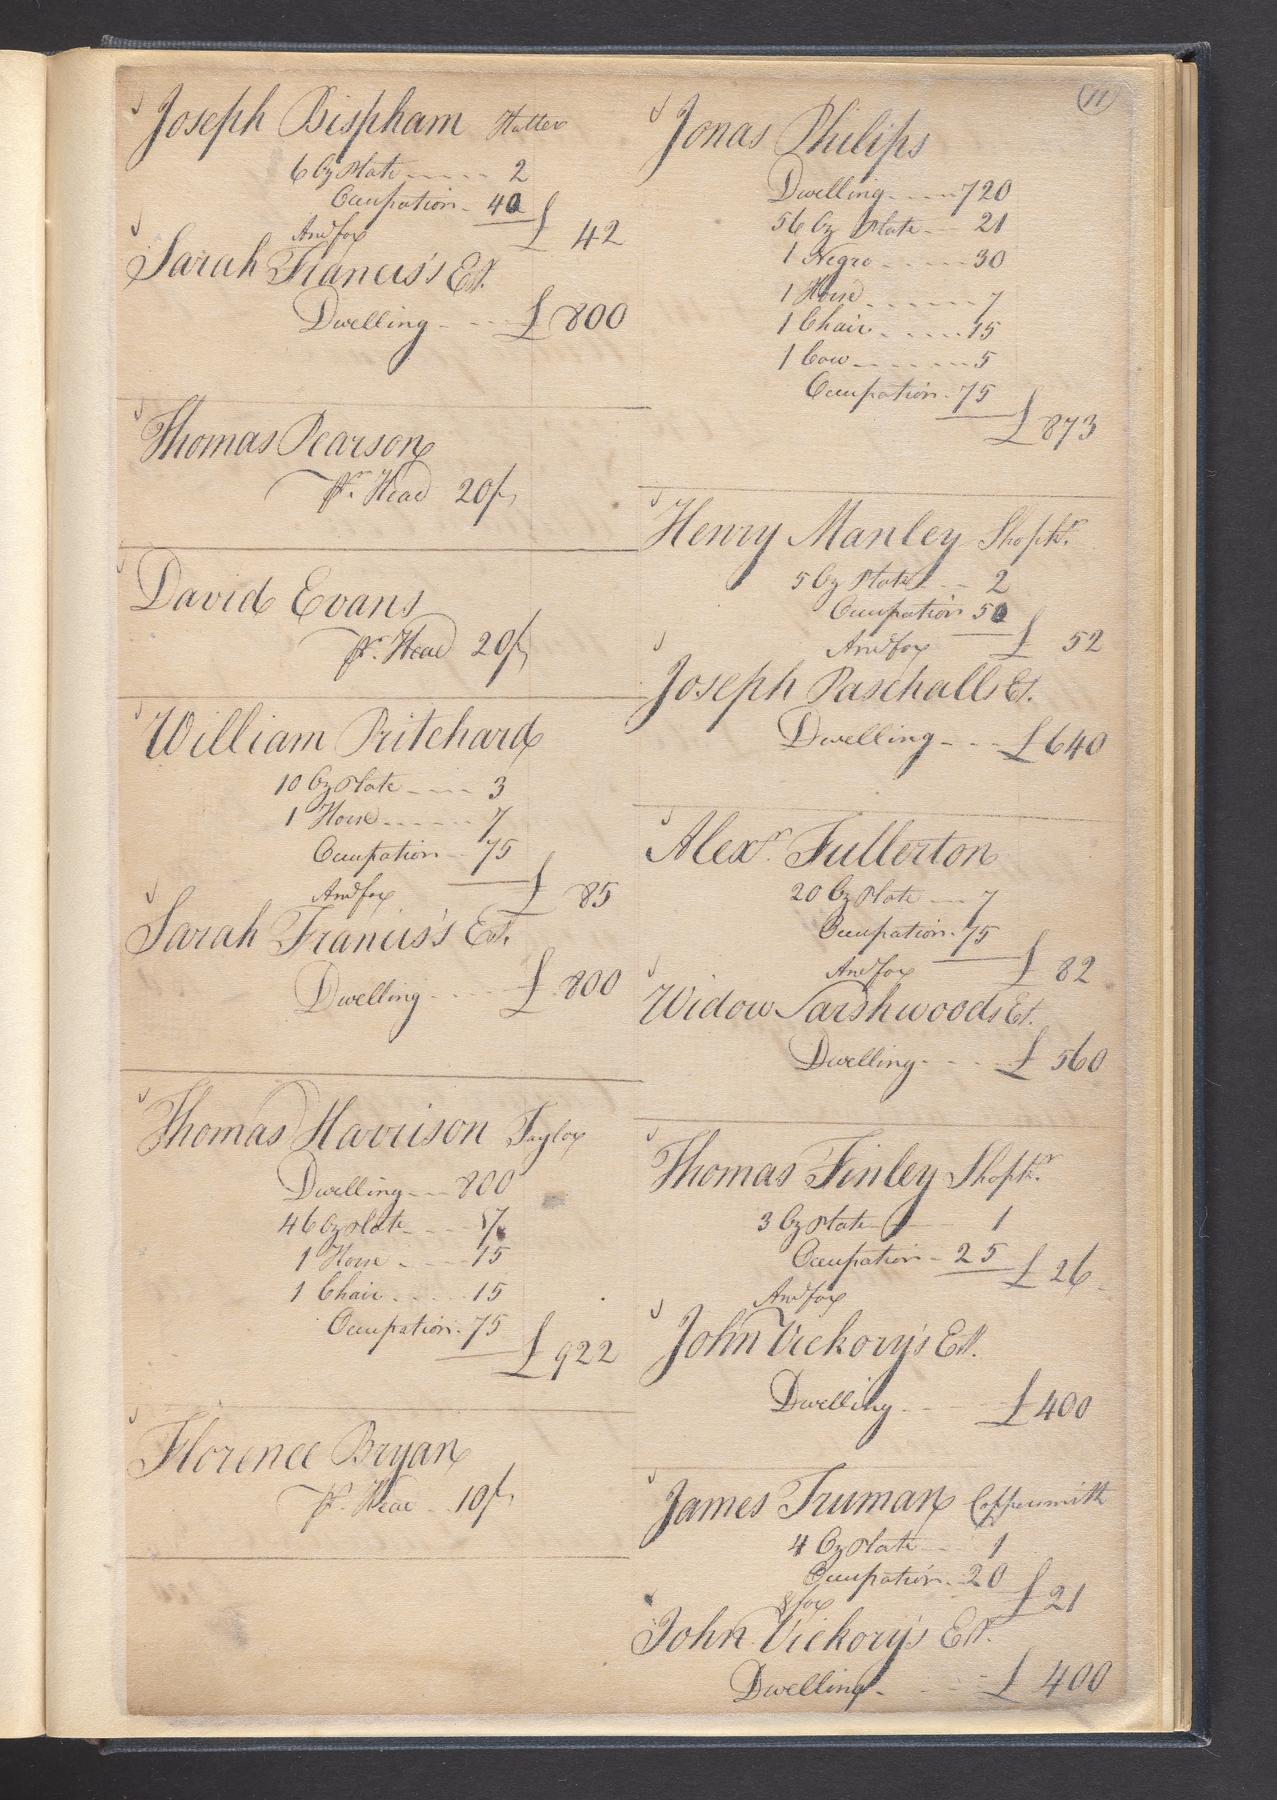 Joseph Bispham Hatter
6 Oz Plate 2
Occupation 40
£ 42
And for
Sarah Francis's Est.
Dwelling £ 800
Thomas Pearson
pr. Head 20/
David Evans
pr. Head 20/
William Pritchard
10 Oz Plate 3
1 Horse 7
Occupation 75
£ 85
And for
Sarah Francis's Est.
Dwelling £ 800
Thomas Harrison Taylor
Dwelling 800
46 Oz Plate 17
1 Horse 15
1 Chair 15
Occupation 75
£ 922
Florence Bryan
pr. Head 10/
11
Jonas Philips
Dwelling 720
56 Oz Plate 21
1 Negro 30
1 Horse 7
1 Chair 15
1 Cow 5
Occupation 75
£ 873
Henry Manley Shopkr.
5 Oz Plate 2
Occupation 50
£ 52
And for
Joseph Paschalls Est.
Dwelling £ 640
Alexr. Fullerton
20 Oz Plate 7
Occupation 75
£ 82
And for
Widow Est.
Dwelling £ 560
Thomas Finley Shopkr.
3 Oz Plate 1
Occupation 25 £ 26
And for
John Vickory's Est.
Dwelling £ 400
James Truman Coppersmith
4 Oz Plate 1
Occupation 20
£ 21
& for
John Vickory's Est.
Dwelling £ 400